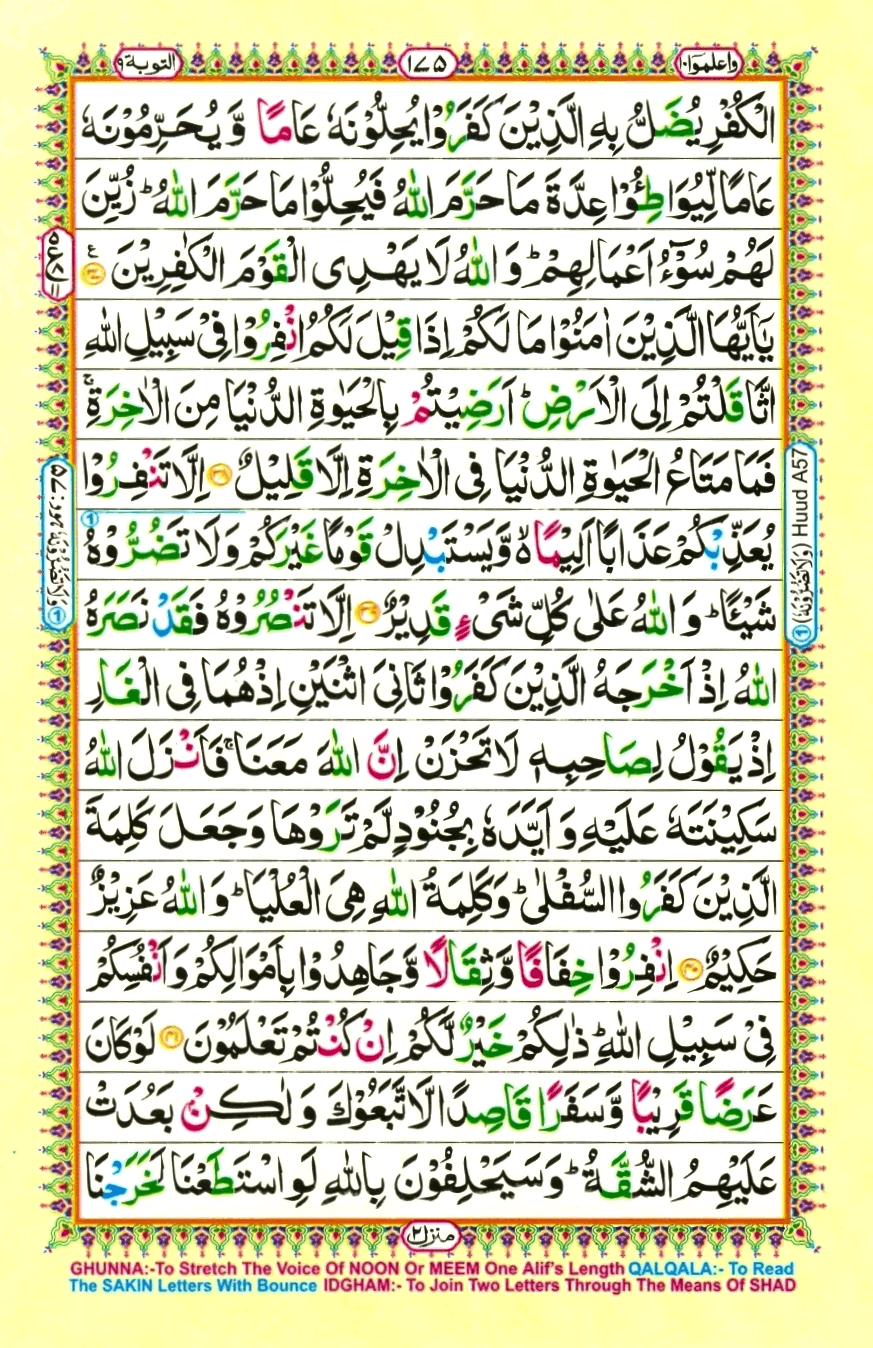 التوبة ٩
١٧٥
واعلموا ١٠
الْكُفْرِ يُضَلُّ بِهِ الَّذِيْنَ كَفَرُوْا يُحِلُّوْنَهٗ عَامًا وَّ يُحَرِّمُوْنَهٗ
عَامًا لِّيُوَاطِـُٔوْا عِدَّةَ مَا حَرَّمَ اللّٰهُ فَيُحِلُّوْا مَا حَرَّمَ اللّٰهُ ؕ زُيِّنَ
لَهُمْ سُوْٓءُ اَعْمَالِهِمْ ؕ وَ اللّٰهُ لَا يَهْدِى الْقَوْمَ الْكٰفِرِيْنَ
يٰۤاَيُّهَا الَّذِيْنَ اٰمَنُوْا مَا لَكُمْ اِذَا قِيْلَ لَكُمُ انْفِرُوْا فِىْ سَبِيْلِ اللّٰهِ
اثَّاقَلْتُمْ اِلَى الْاَرْضِ ؕ اَرَضِيْتُمْ بِالْحَيٰوةِ الدُّنْيَا مِنَ الْاٰخِرَةِ ۚ
فَمَا مَتَاعُ الْحَيٰوةِ الدُّنْيَا فِى الْاٰخِرَةِ اِلَّا قَلِيْلٌ ۝ اِلَّا تَنْفِرُوْا
يُعَذِّبْكُمْ عَذَابًا اَلِيْمًا ۙ وَّيَسْتَبْدِلْ قَوْمًا غَيْرَكُمْ وَلَا تَضُرُّوْهُ
شَيْـًٔا ؕ وَ اللّٰهُ عَلٰى كُلِّ شَىْءٍ قَدِيْرٌ ۝ اِلَّا تَنْصُرُوْهُ فَقَدْ نَصَرَهُ
اللّٰهُ اِذْ اَخْرَجَهُ الَّذِيْنَ كَفَرُوْا ثَانِىَ اثْنَيْنِ اِذْ هُمَا فِى الْغَارِ
اِذْ يَقُوْلُ لِصَاحِبِهٖ لَا تَحْزَنْ اِنَّ اللّٰهَ مَعَنَا ۚ فَاَنْزَلَ اللّٰهُ
سَكِيْنَتَهٗ عَلَيْهِ وَ اَيَّدَهٗ بِجُنُوْدٍ لَّمْ تَرَوْهَا وَجَعَلَ كَلِمَةَ
الَّذِيْنَ كَفَرُوا السُّفْلٰى ؕ وَكَلِمَةُ اللّٰهِ هِىَ الْعُلْيَا ؕ وَ اللّٰهُ عَزِيْزٌ
حَكِيْمٌ ۝٤٠ اِنْفِرُوْا خِفَافًا وَّثِقَالًا وَّجَاهِدُوْا بِاَمْوَالِكُمْ وَاَنْفُسِكُمْ
فِىْ سَبِيْلِ اللّٰهِ ؕ ذٰلِكُمْ خَيْرٌ لَّكُمْ اِنْ كُنْتُمْ تَعْلَمُوْنَ ۝٤١ لَوْ كَانَ
عَرَضًا قَرِيْبًا وَّسَفَرًا قَاصِدًا لَّاتَّبَعُوْكَ وَ لٰكِنْۢ بَعُدَتْ
عَلَيْهِمُ الشُّقَّةُ ؕ وَسَيَحْلِفُوْنَ بِاللّٰهِ لَوِ اسْتَطَعْنَا لَخَرَجْنَا
(وَلَا تَضُرُّوْنَهٗ) Huud A57
منزل ٢
GHUNNA:-To Stretch The Voice Of NOON Or MEEM One Alif's Length QALQALA:- To Read
The SAKIN Letters With Bounce IDGHAM:- To Join Two Letters Through The Means Of SHAD